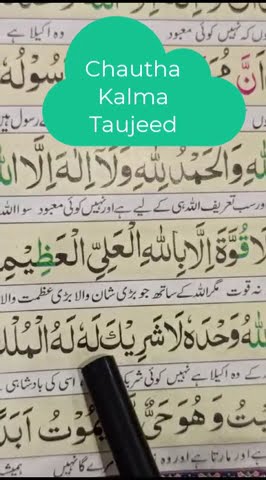 وں کہ نہیں کوئی معبود وہ اکیلا ہے
Chautha
Kalma
Taujeed
نَّ مُ سُوْلُهٗ
رسول ہیں
لِلّٰهِ وَالْحَمْدُ لِلّٰهِ وَلَآ اِلٰهَ اِلَّا
ور سب تعریف اللہ ہی کے لیے ہے اور نہیں کوئی معبود سوا اللہ
قُوَّةَ اِلَّا بِاللّٰهِ الْعَلِيِّ الْعَظِيْمِ
نہ قوت مگر اللہ کے ساتھ جو بڑی شان والا بڑی عظمت والا
اللّٰهُ وَحْدَهٗ لَا شَرِيْكَ لَهٗ لَهُ الْمُلْ
کے وہ اکیلا ہے نہیں کوئی شر اسی کی بادشاہی
يْتُ وَهُوَ حَيٌّ مُوْتُ اَبَدً
ہے اور مارتا ہے اور وہ رے گا نہیں ہمیش